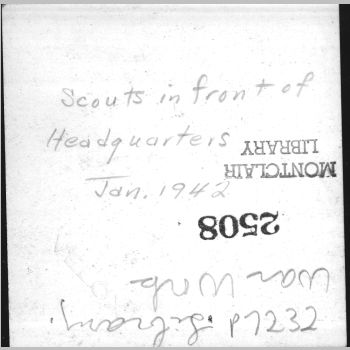 Scouts in front of
Headquarters
Jan. 1942
MONTCLAIR
LIBRARY
2508
War Work
Library. P7232